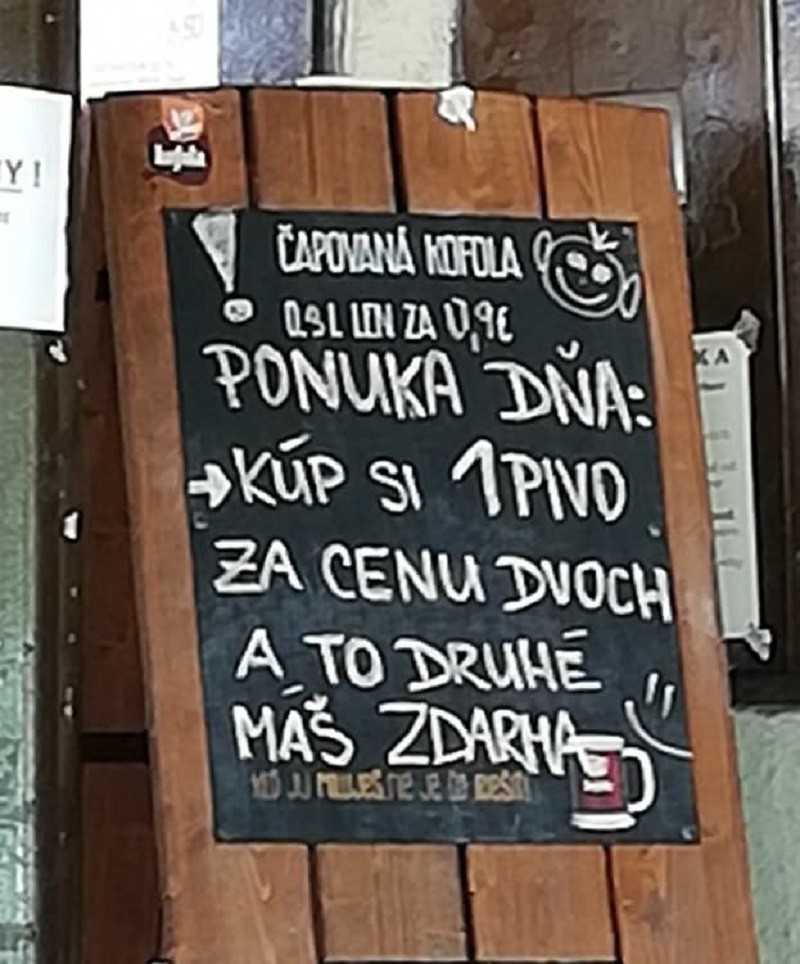 kofola
ČAPOVANÁ KOFOLA
LEN ZA 0,9€
PONUKA DŇA:
KÚP SI 1 PIVO
ZA CENU DVOCH
A TO DRUHÉ
MÁŠ ZDARMA
JU MILUJEŠ, NIE JE ČO RIEŠIŤ